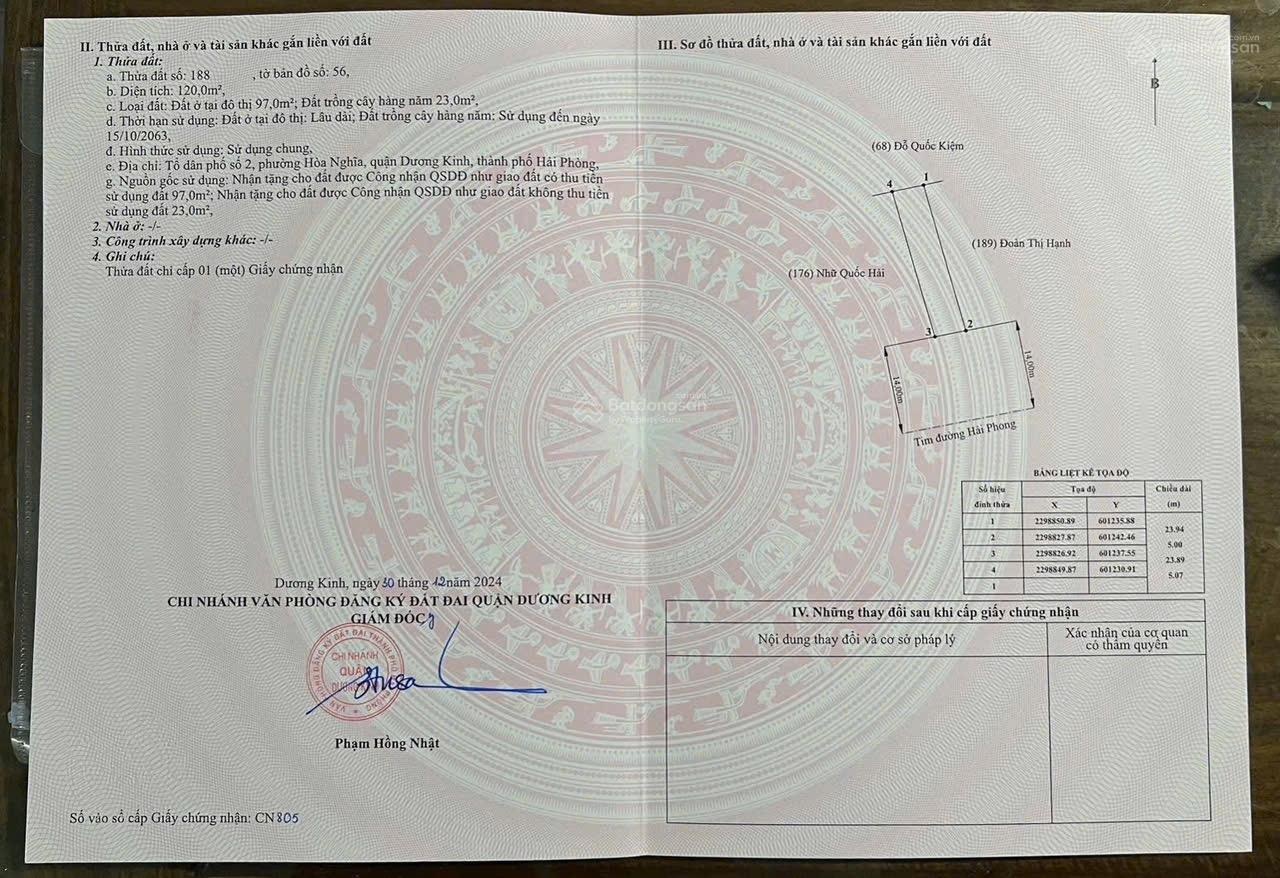 II. Thửa đất, nhà ở và tài sản khác gắn liền với đất
1. Thửa đất:
a. Thửa đất số: 188 , tờ bản đồ số: 56,
b. Diện tích: 120,0m²,
c. Loại đất: Đất ở tại đô thị 97,0m²; Đất trồng cây hàng năm 23,0m²,
d. Thời hạn sử dụng: Đất ở tại đô thị: Lâu dài; Đất trồng cây hàng năm: Sử dụng đến ngày
15/10/2063,
đ. Hình thức sử dụng: Sử dụng chung,
e. Địa chỉ: Tổ dân phố số 2, phường Hòa Nghĩa, quận Dương Kinh, thành phố Hải Phòng,
g. Nguồn gốc sử dụng: Nhận tặng cho đất được Công nhận QSDĐ như giao đất có thu tiền
sử dụng đất 97,0m²; Nhận tặng cho đất được Công nhận QSDĐ như giao đất không thu tiền
sử dụng đất 23,0m²,
2. Nhà ở: -/-
3. Công trình xây dựng khác: -/-
4. Ghi chú:
Thửa đất chỉ cấp 01 (một) Giấy chứng nhận
Dương Kinh, ngày 30 tháng 12 năm 2024
CHI NHÁNH VĂN PHÒNG ĐĂNG KÝ ĐẤT ĐAI QUẬN DƯƠNG KINH
GIÁM ĐỐC
VĂN PHÒNG ĐĂNG KÝ ĐẤT ĐAI THÀNH PHỐ HẢI PHÒNG
CHI NHÁNH
QUẬN
DƯƠNG KINH
Phạm Hồng Nhật
Số vào sổ cấp Giấy chứng nhận: CN805
III. Sơ đồ thửa đất, nhà ở và tài sản khác gắn liền với đất
B
(68) Đỗ Quốc Kiệm
4 1
(189) Đoàn Thị Hạnh
(176) Nhữ Quốc Hải
3 2
14,00m
14,00m
Tim đường Hải Phong
BẢNG LIỆT KÊ TỌA ĐỘ
Số hiệu đỉnh thửa Tọa độ Chiều dài (m)
X Y
1 2298850.89 601235.88
23.94
2 2298827.87 601242.46
5.00
3 2298826.92 601237.55
23.89
4 2298849.87 601230.91
5.07
1
IV. Những thay đổi sau khi cấp giấy chứng nhận
Nội dung thay đổi và cơ sở pháp lý
Xác nhận của cơ quan
có thẩm quyền
Batdongsan
.com.vn
by PropertyGuru
Batdongsan
.com.vn